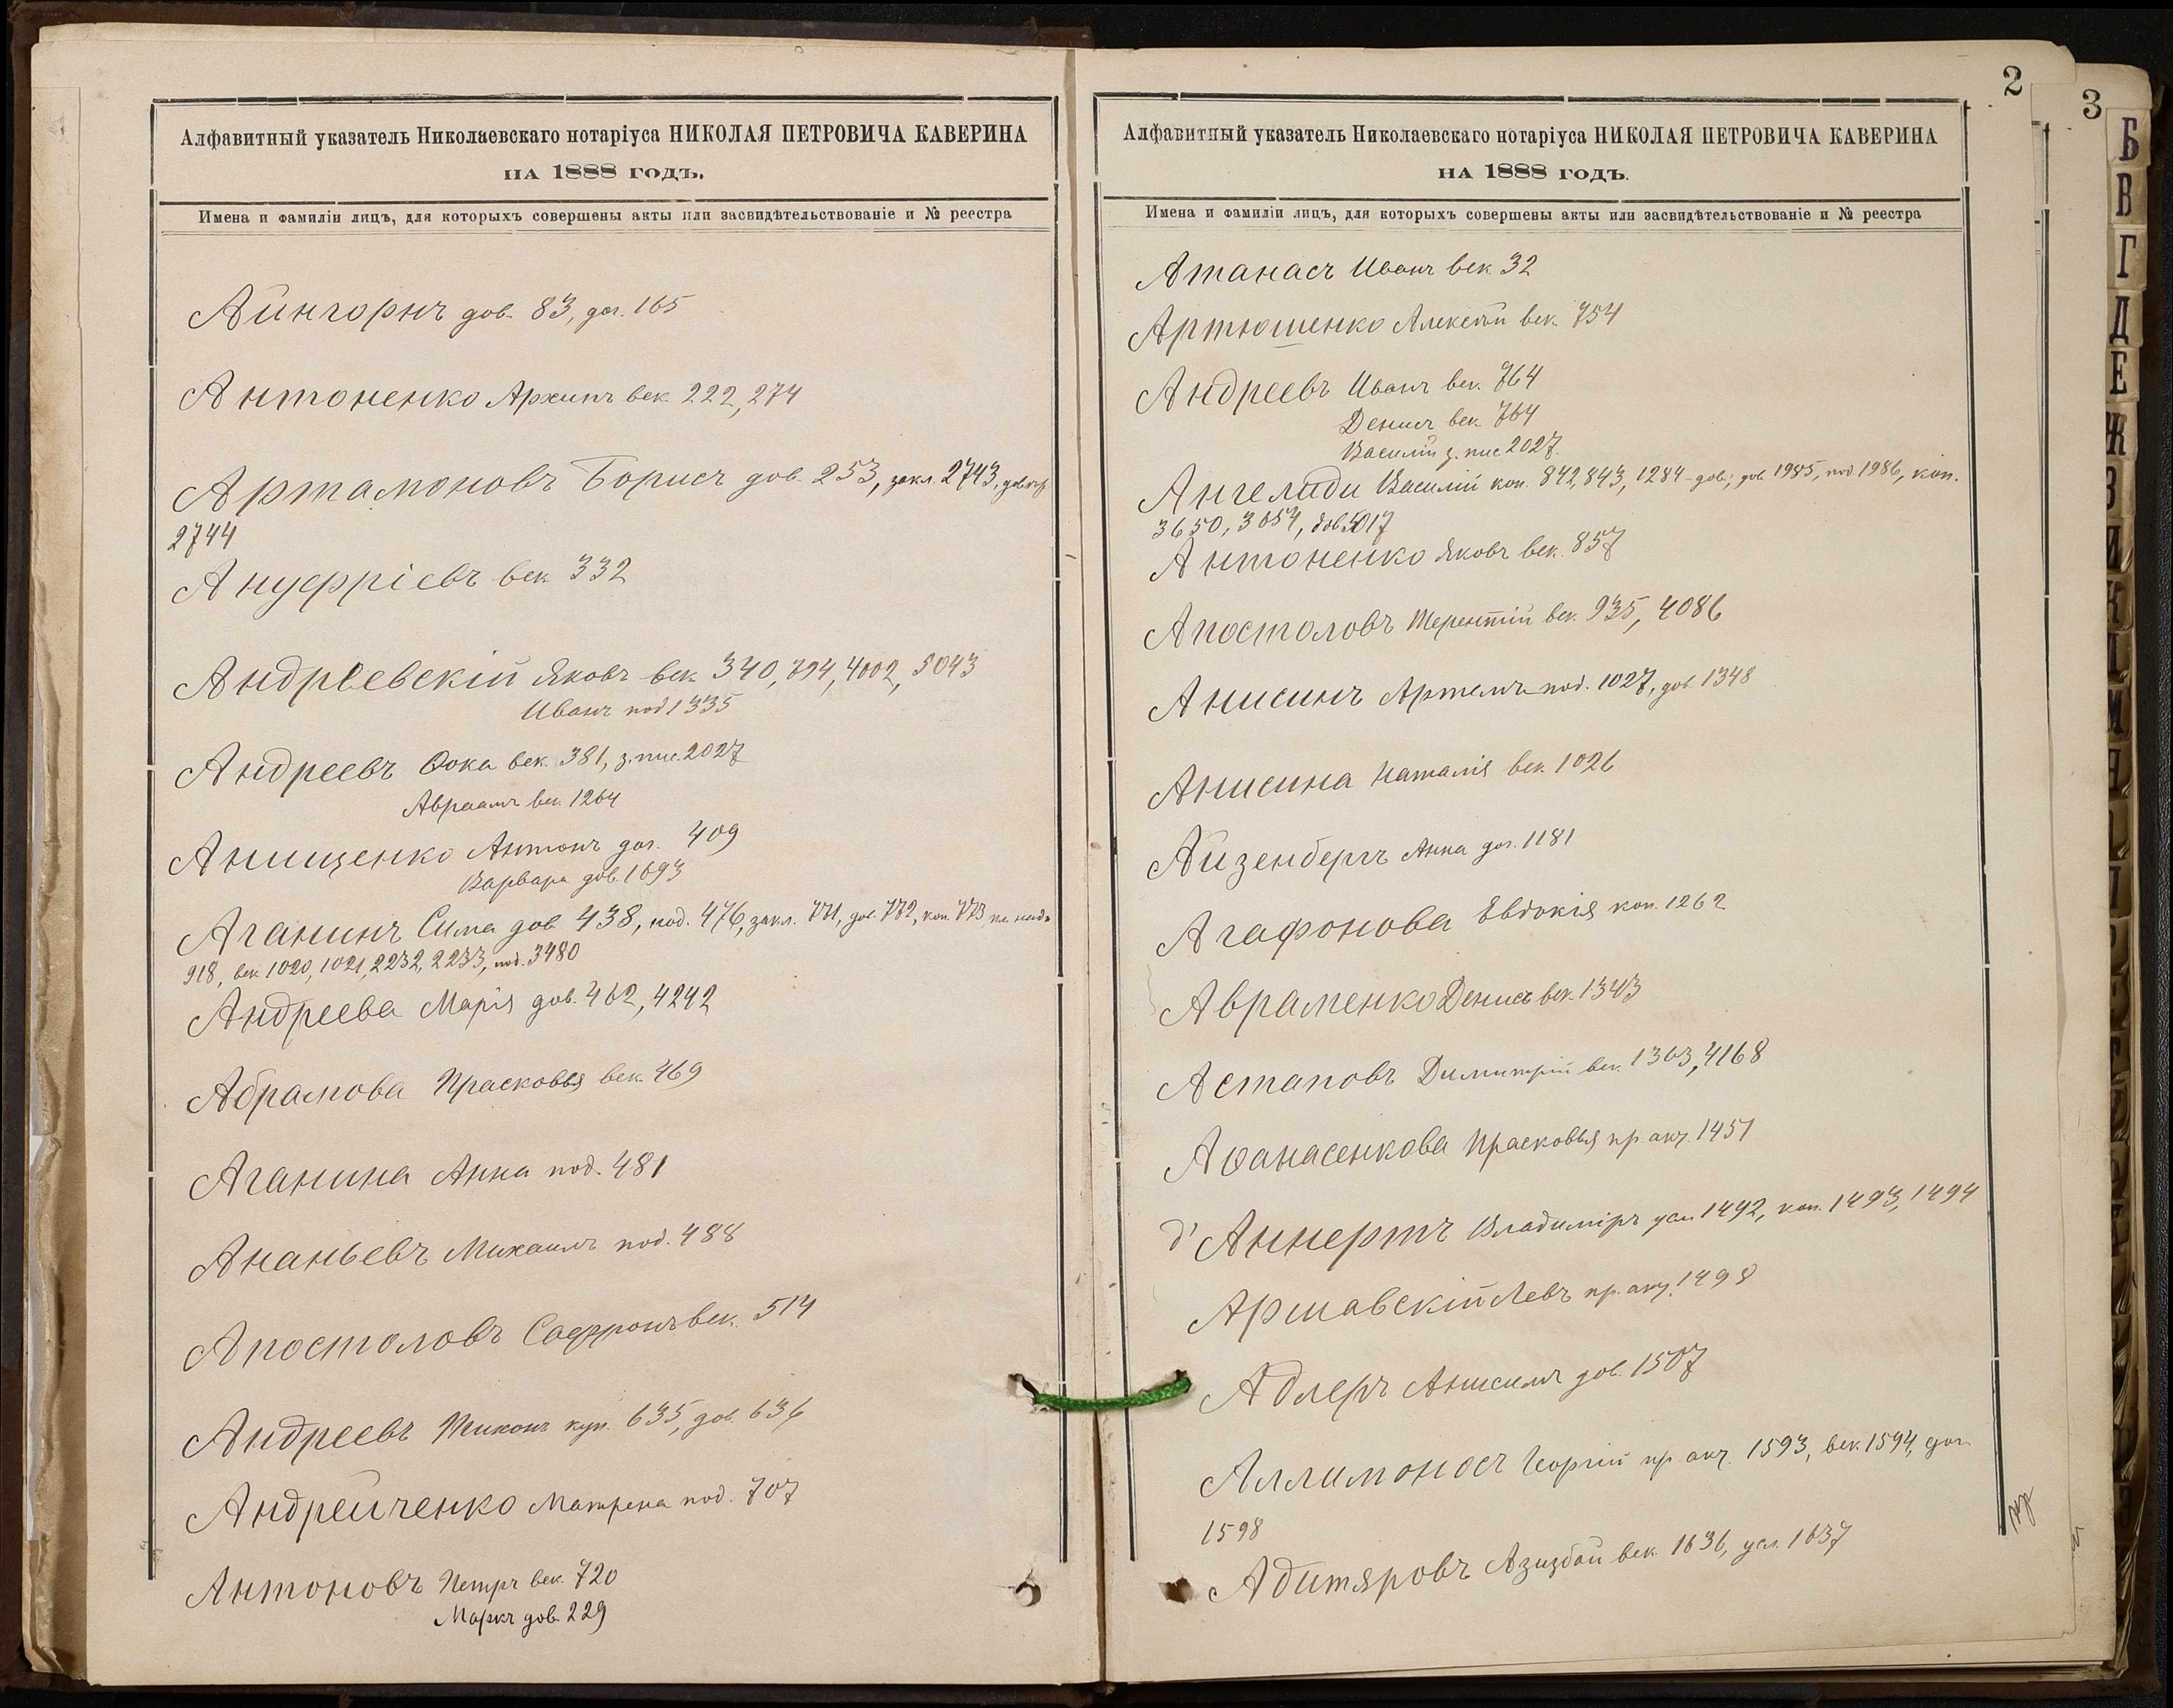 Алфавитный указатель Николаевскаго нотаріуса НИКОЛАЯ ПЕТРОВИЧА КАВЕРИНА
НА 1888 ГОДЪ.
Имена и фамиліи лицъ, для которыхъ совершены акты или засвидѣтельствованіе и № реестра
Айнгорнъ дов. 83, дог. 165
Антоненко Архипъ век. 222, 274
Артамоновъ Борисъ дов. 253, закл. 2743,
2744
Ануфріевъ век. 332
Андреевскій Яковъ век. 340, 794, 4002, 5043
Иванъ под 1335
Андреевъ Ѳока век. 381, з. пис. 2027
Авраамъ век. 1264
Анищенко Антонъ дог. 409
Варвара дов. 1693
Аганинъ Сима дов 438, под. 476, закл. 771, дов. 772, коп. 773,
918, век. 1020, 1021, 2232, 2233, под. 3480
Андреева Марія дов. 462, 4242
Абрамова Прасковья век. 469
Аганина Анна под. 481
Ананьевъ Михаилъ под. 488
Апостоловъ Софронъ век. 514
Андреевъ Тихонъ куп. 635, дов. 636
Андрейченко Матрена под. 707
Антоновъ Петръ век. 720
Маркъ дов. 229
2
3
Алфавитный указатель Николаевскаго нотаріуса НИКОЛАЯ ПЕТРОВИЧА КАВЕРИНА
НА 1888 ГОДЪ.
Имена и фамиліи лицъ, для которыхъ совершены акты или засвидѣтельствованіе и № реестра
Атанасъ Иванъ век. 32
Артюшенко Алексѣй век. 754
Андреевъ Иванъ век. 764
Денисъ век. 764
Василій з. пис 2027.
Ангелиди Василій коп. 842, 843, 1284 - дов; дов 1985, под 1986, коп.
3650, 3654, дов 5017
Антоненко Яковъ век. 857
Апостоловъ Терентій век. 935, 4086
Анисинъ Артемъ под. 1027, дов. 1348
Анисина Наталія век. 1026
Айзенбергъ Анна дог. 1181
Агафонова Евдокія коп. 1262
Авраменко Денисъ век. 1343
Астаповъ Димитрій век. 1363, 4168
Аѳанасенкова Прасковья пр. акц. 1451
д' Аннертъ Владиміръ усл. 1492, коп. 1493, 1494
Аршавскій Левъ пр. акц. 1498
Адлеръ Анисимъ дов. 1507
Аллимоносъ Георгій пр. акц. 1593, век. 1594, дог.
1598
Абитяровъ Азизбай век. 1636, усл. 1637
Б
В
Г
Д
Е
Ж
З
И
К